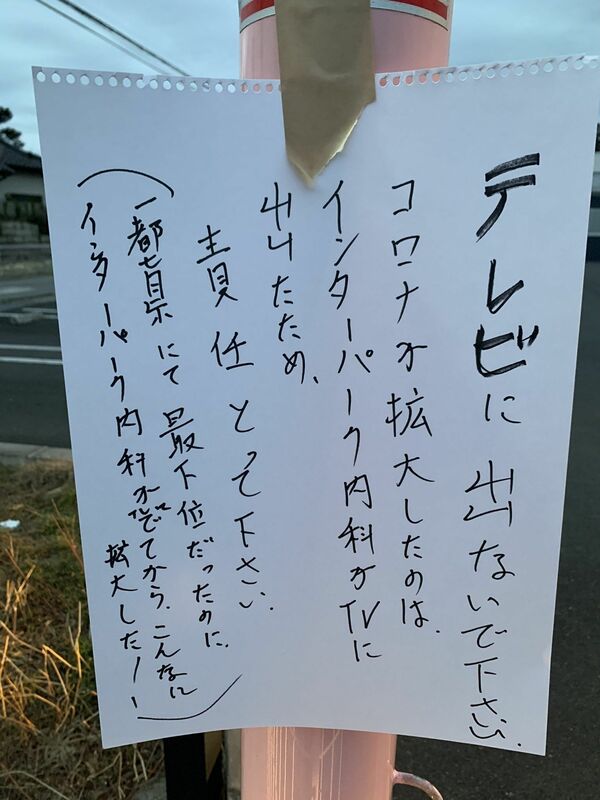 テレビに出ないで下さい.
コロナが拡大したのは.
インターパーク内科がTVに
出たため、
責任とって下さい.
(一都七県にて最下位だったのに.
インターパーク内科がでてから.こんなに
拡大した!!)